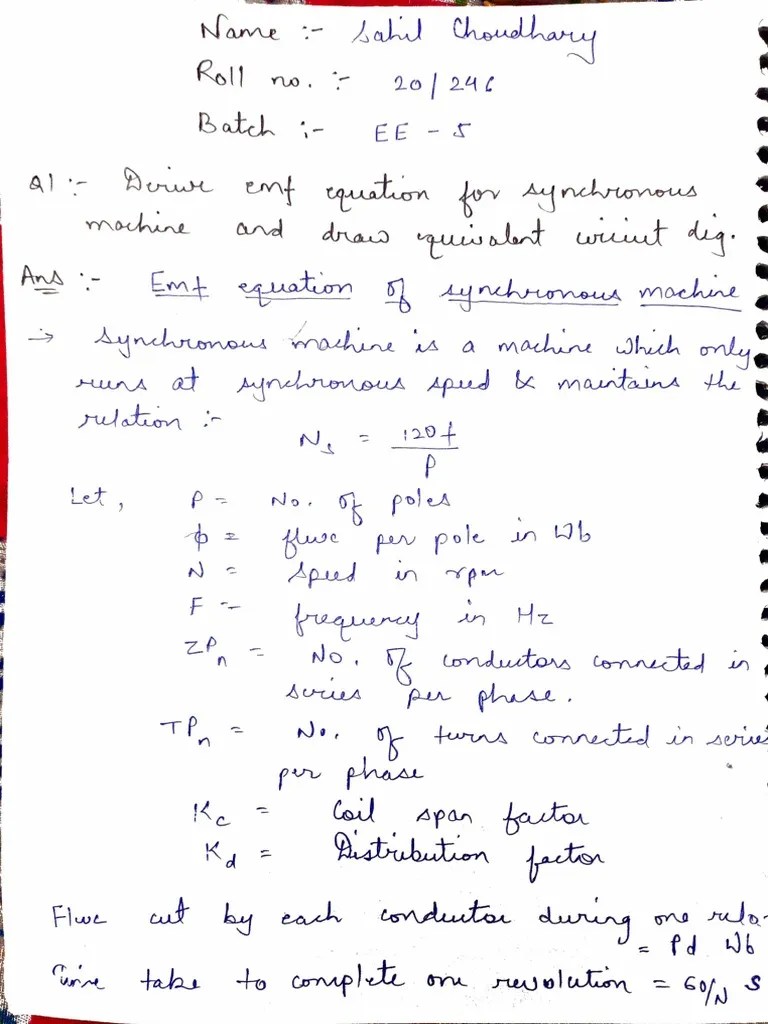 Name :- Sahil Choudhary
Roll no. :- 20/246
Batch :- EE - 5
Q1 :- Derive emf equation for synchronous
machine and draw equivalent circuit dig.
Ans :- Emf equation of synchronous machine
→ Synchronous machine is a machine which only
runs at synchronous speed & maintains the
relation :-
Ns = 120f / P
Let, P = No. of poles
ϕ = flux per pole in Wb
N = Speed in rpm
F = frequency in Hz
ZPn = No. of conductors connected in
series per phase.
TPn = No. of turns connected in series
per phase
Kc = Coil span factor
Kd = Distribution factor
Flux cut by each conductor during one
= Pd Wb
Time take to complete one revolution = 60/N S